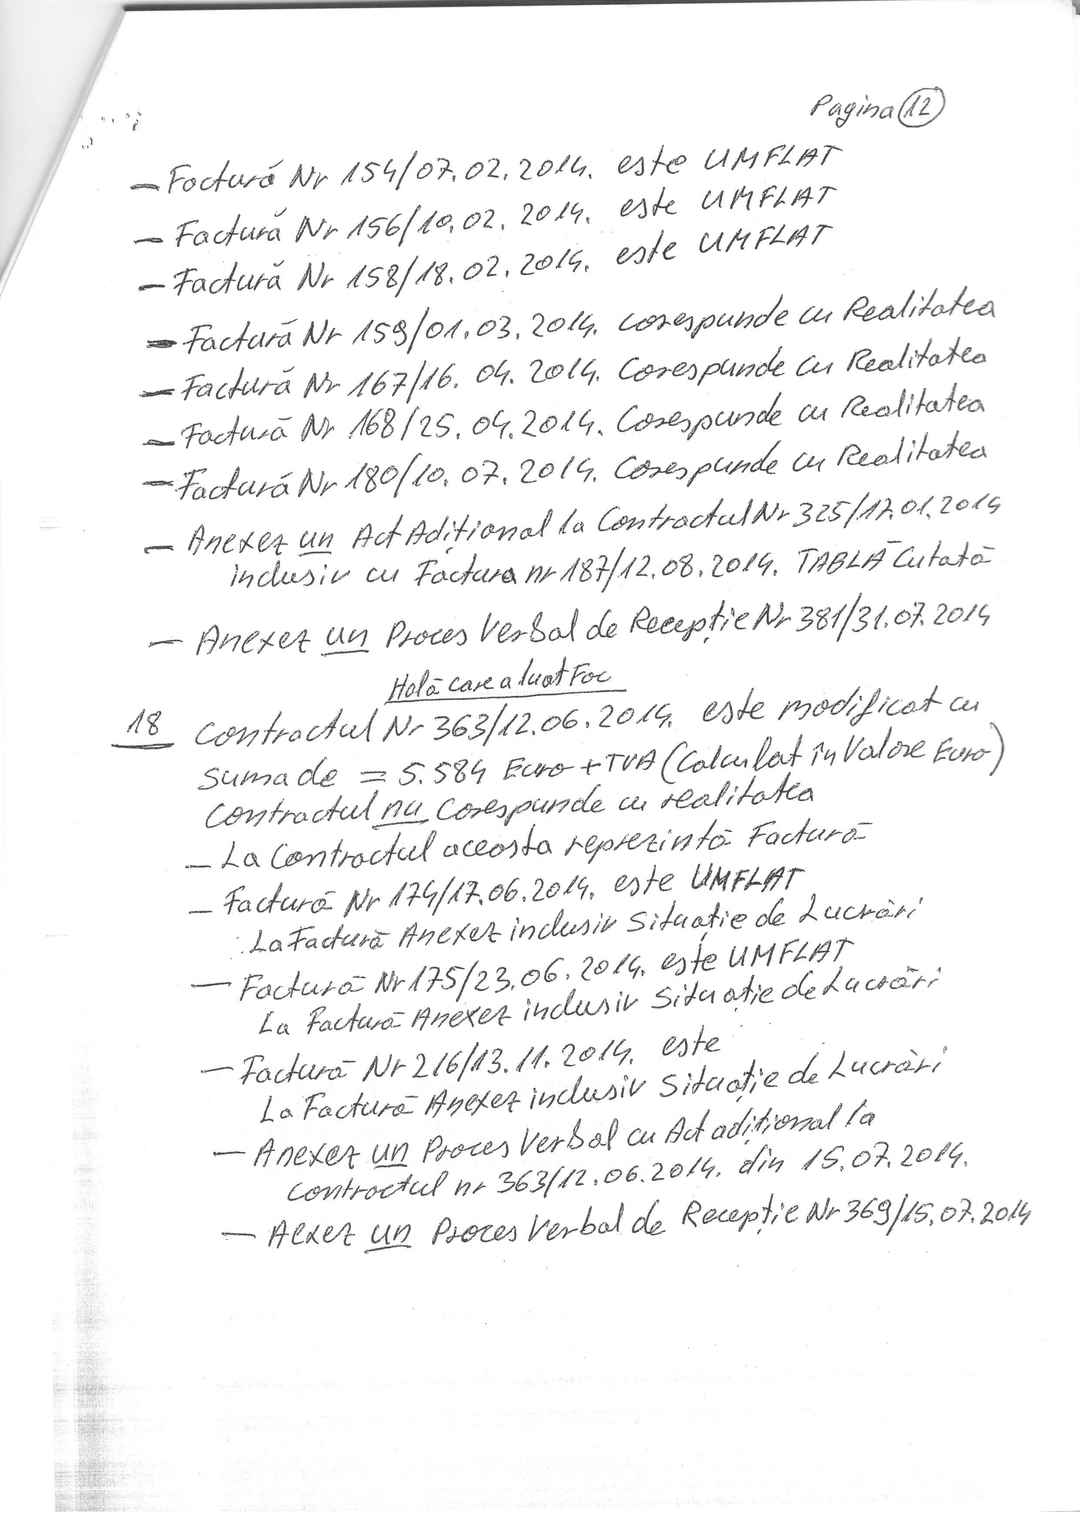 Pagina 12
- Factură Nr 154/07.02.2014. este UMFLAT
- Factură Nr 156/10.02.2014. este UMFLAT
- Factură Nr 158/18.02.2014. este UMFLAT
- Factură Nr 159/01.03.2014. corespunde cu Realitatea
- Factură Nr 167/16.04.2014. Corespunde cu Realitatea
- Factură Nr 168/25.04.2014. Corespunde cu Realitatea
- Factură Nr 180/10.07.2014. Corespunde cu Realitatea
- Anexez un Act Adițional la Contractul Nr 325/17.01.2014
inclusiv cu Factura nr 187/12.08.2014. TABLĂ Cutată
- Anexez un Proces Verbal de Recepție Nr 381/31.07.2014
Hală care a luat Foc
18 Contractul Nr 363/12.06.2014. este modificat cu
suma de = 5.584 Euro + TVA (Calculat în Valore Euro)
Contractul nu Corespunde cu realitatea
- La Contractul aceasta reprezintă Factură
- Factură Nr 174/17.06.2014. este UMFLAT
La Factură Anexez inclusiv Situație de Lucrări
- Factură Nr 175/23.06.2014. este UMFLAT
La Factură Anexez inclusiv Situație de Lucrări
- Factură Nr 216/13.11.2014. este
La Factură Anexez inclusiv Situație de Lucrări
- Anexez un Proces Verbal cu Act adițional la
contractul nr 363/12.06.2014. din 15.07.2014.
- Alxez un Proces Verbal de Recepție Nr 369/15.07.2014